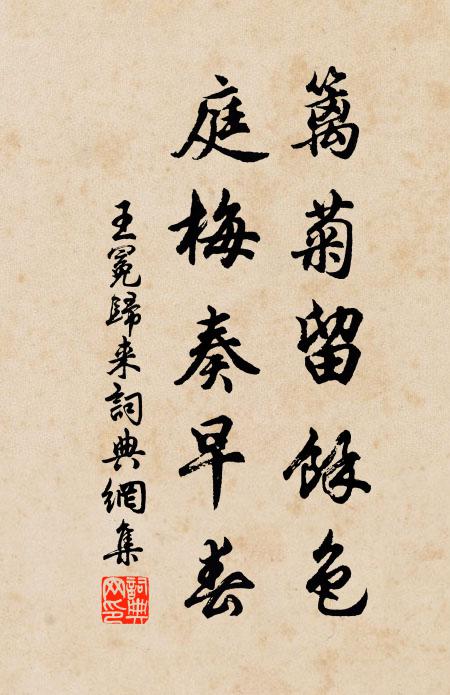 籬菊留餘色
庭梅奏早春
王冕歸来詞典網集
詞典網印